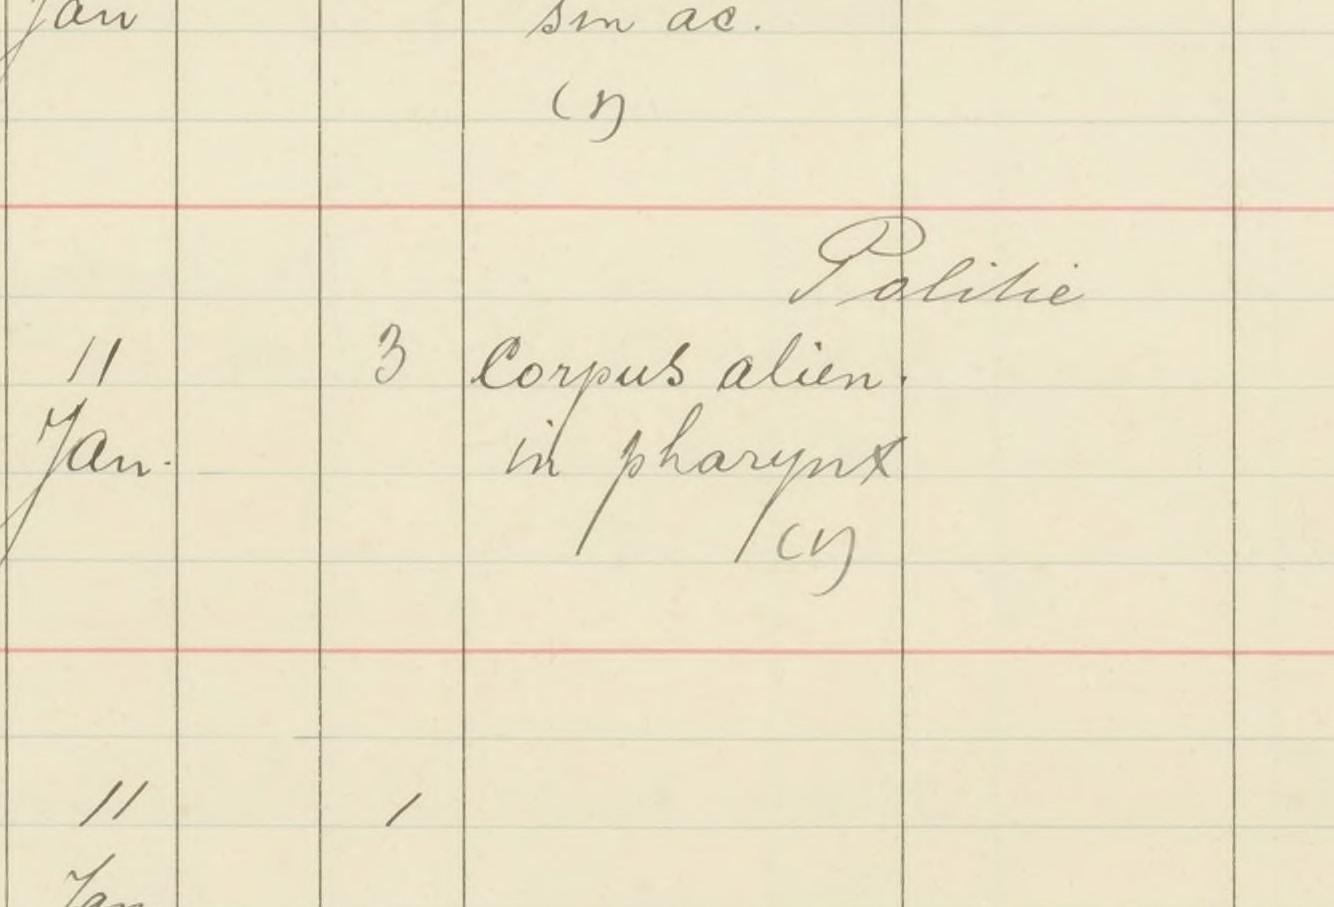 Jan sin ac.
(1)
Politie
11 3 Corpus alien.
Jan. in pharynx
(1)
11 1
Jan